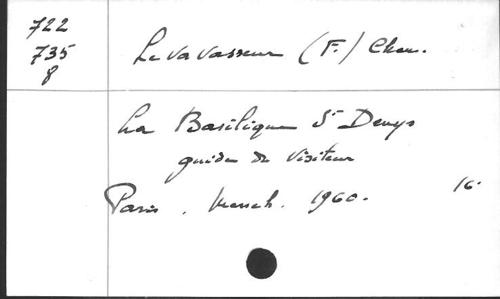 722
735
8
Levavasseur (F.) Chan.
La Basilique St Denys
guide du visiteur
Paris. 1960. 16.